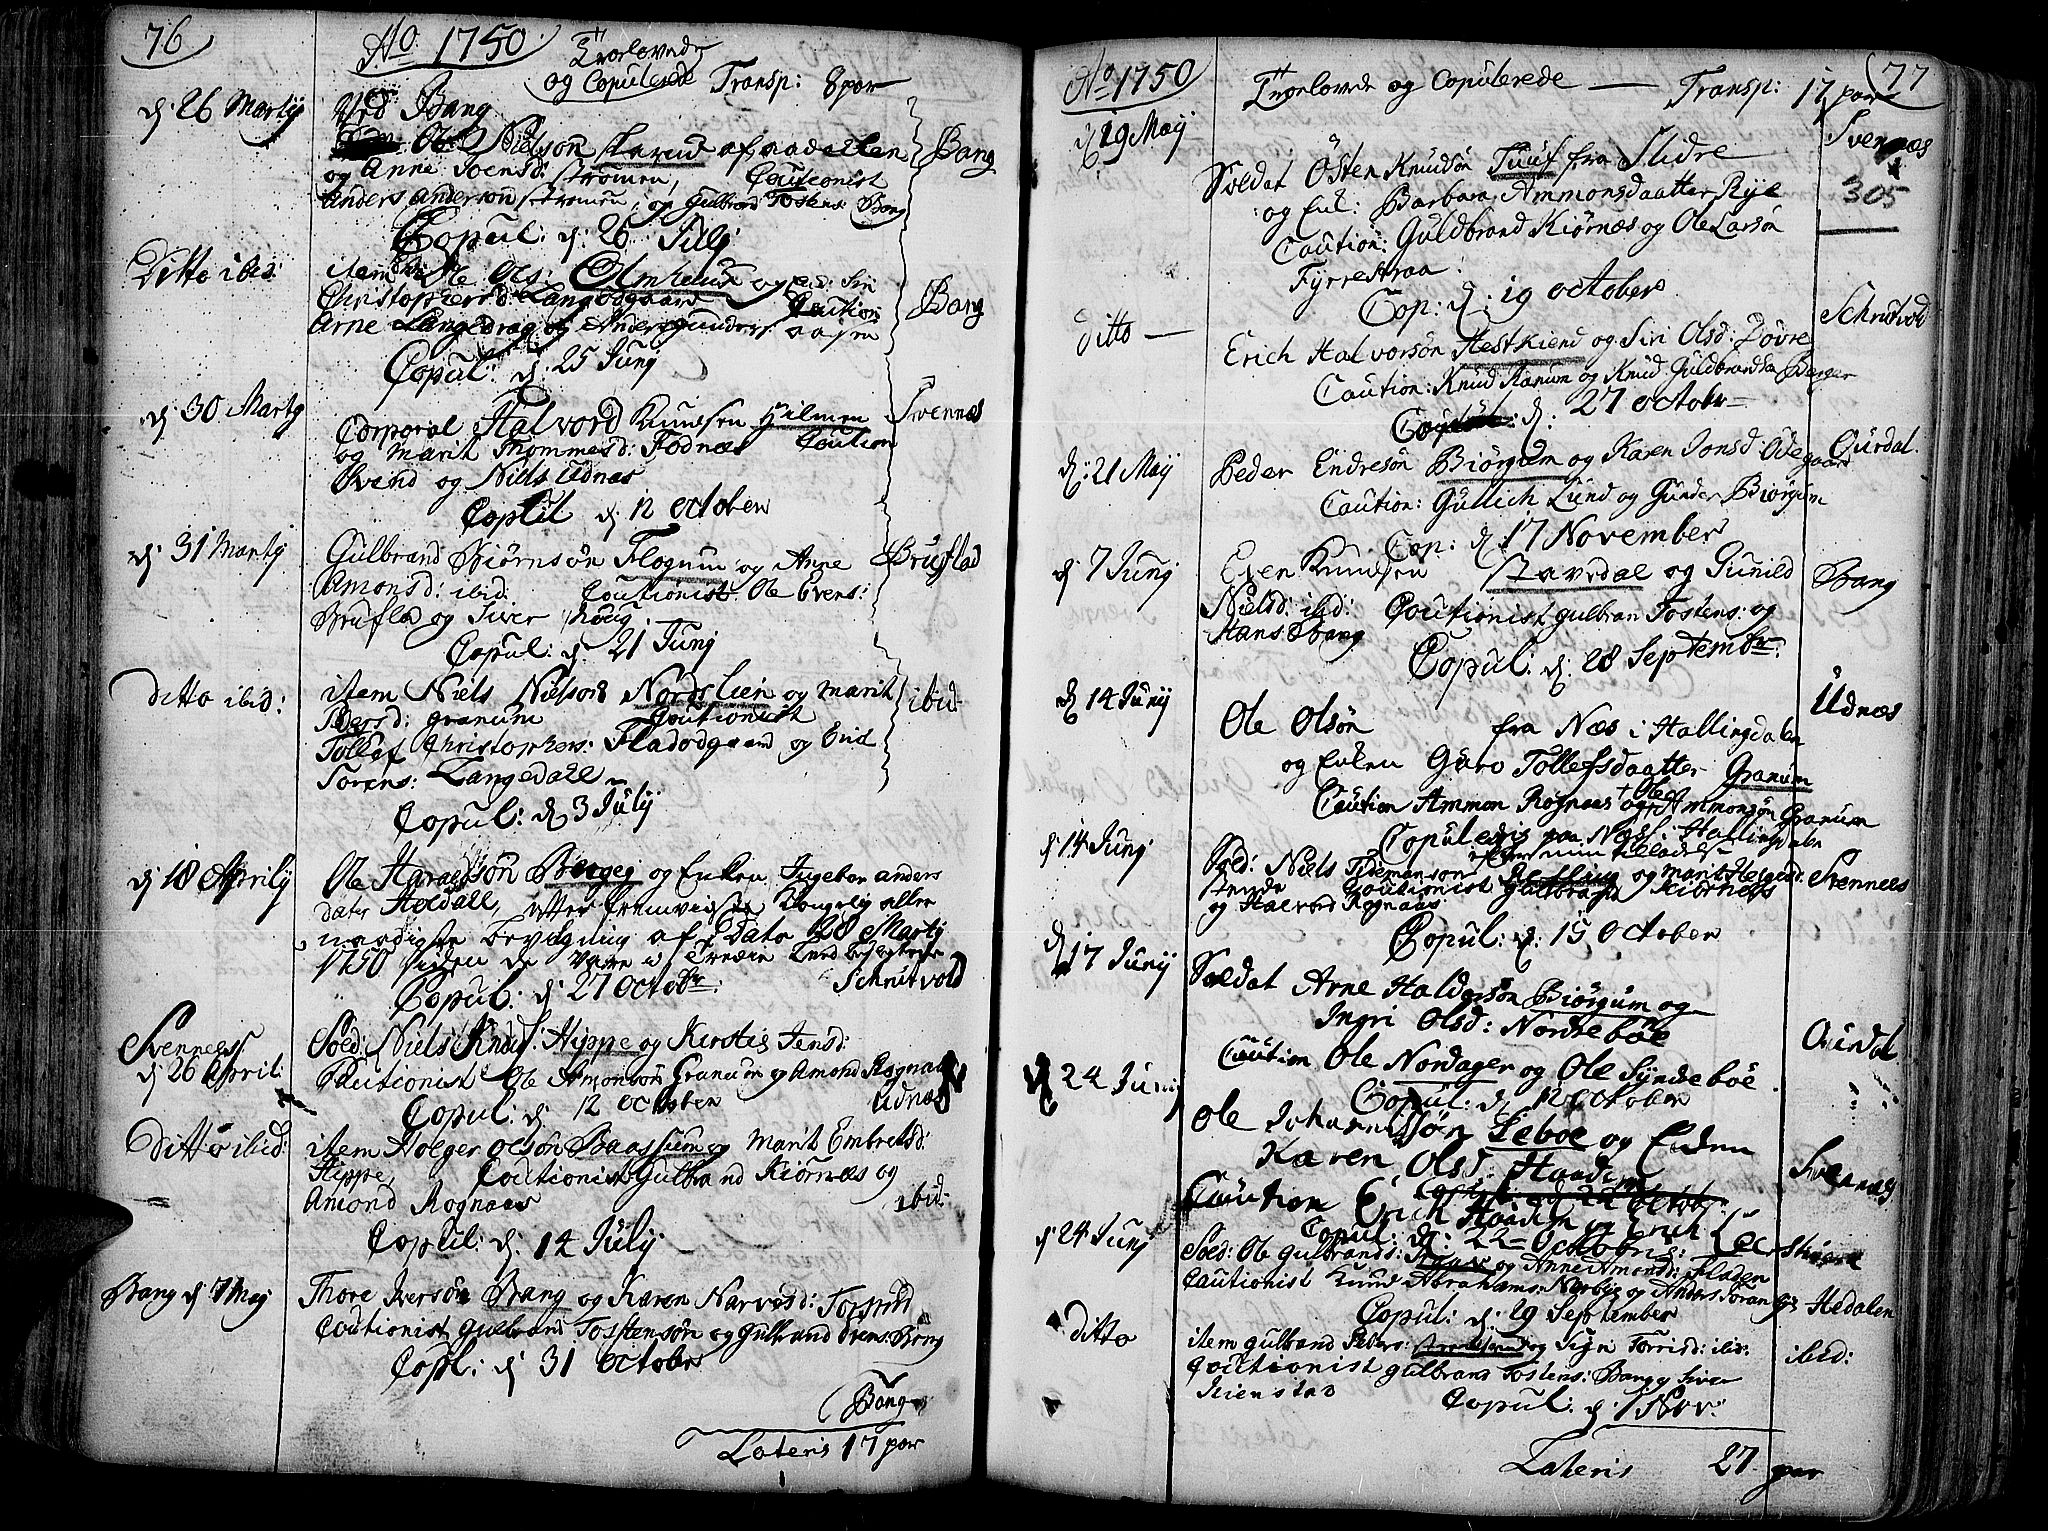 76
Ao 1750
Trolovede
og Copulerede Transp: 8 par
d. 26 Martij
Ved Bang
Ole Nielsøn af aadalen
Bang
og Anne Joensd: strømen, Coutionist
Anders Anderson strømen, og Gulbrand Tostens: Bang
Copul: d: 26 July
Ditto ibid:
item Ole Ols: og Eid: Siri
Christophersd: Langødgaard Caution
Bang
Arne Langedrag og Anders Gunders: aasen
Copul: d. 25 Junij
d. 30 Martij
Corporal Halvord Knudsen Hilmen
Svennæs
og Marit Thommesd: Fodnæs Coution
Svend og Niels Udnæs
Copul d. 12 October
d. 31 Martij
Gulbrand Biørnsøn Flogum og Anne
Bruflad
Amonsd: ibid: Coutionist Ole Evens:
Brufla og Siver houg
Copul: d. 21 Junij
Ditto ibid:
item Niels Nielsøn Nordslien og Marit
ibid:
Iversd: granum Coutionist
Tollef Christophers: Fladødgaard og Erid
Torens: Langedall
Copul: d. 3 Julij
d. 18 Aprilij
Ole Haraldsøn Bergej og Enken Ingebor anders
dater Holdall, efter fremviiste Kongelig aller
naadigste bevilgning af Dato 20 Martij
1750 siden de vare i Tredie Leed besvogrede
Copul: d. 27 Octobr: Schrutvold
Svennes
d. 26 April:
Sold: Niels Knuds: Hippe og Kirstie Jensd:
Cautionist Ole Amonsøn Granum og Amond Rognaas
Copul: d. 12 October Udnæs
Ditto ibid:
item Holger Olsøn Baassum og Marit Embretsd:
Hippe, Coutionist Gulbrand Kiørnæs og
Amond Rognaas ibid:
Copul: d. 14 Julij
Bang d. 7 Maij
Thore Iversøn Bang og Karen Narvesd: Torsrud
Coutionist gulbrand Tostensøn og Gulbrand Ivers: Bang
Copl: d. 31 October
Bang
Lateris 17 par
77
Ao 1750
Trolovede og Copulerede — Transp: 17 par
d. 19 Maij
Svennæs
305
Soldat Østen Knudsøn Tuuf fra Slidre
og Enk: Barbara Ammonsdaatter Rye
Caution: Guldbrand Kiørnæs og Ole Larsøn
Fyrrestraa.
Cop: d. 19 October
ditto —
Schrutvold
Erich Halvorsøn Hestkiend og Siri Olsd: Dovre
Caution: Knud Ranum og Knud Guldbrandsøn Berger
d. 27 Octobr
d. 21 Maij
Ourdal
Peder Endresøn Biørgum og Karen Jonsd: Ødegaard
Caution: Gullich Lund og Gunder Biørgum
Cop: d. 17 November
d. 7 Junij
Even Knudsen Stavedal og Gunild
Bang
Nielsd: ibid: Coutionist gulbran Tostens: og
Hans Bang
Copul: d. 28 Septembr:
d. 14 Junij
Udnæs
Ole Olsøn fra Næs i Hallingdalen
og Enken Guro Tollefsdaatter Granum
Caution Ammon Rognaas og Ole Ammonsøn Granum
Copuleris paa Næss i Hallingdalen
efter min tilladelse
d. 14 Junij
Svennes
Sold: Niels Tidemansøn og Marit Helgesd:
Coutionist Gulbrand Kiørnæs
og Halvord Rognaas
Copul: d. 15 October
d. 17 Junij
Soldat Arne Haldorsøn Biørgum og
Ingri Olsd: Nordrebøe
Ourdal
Caution Ole Nordager og Ole Syndebøe
Copul: d. 12 October
d. 24 Junij
Ole Johannessøn Leboe og Enken
Karen Olsd: Haadem
Svennæs
Caution Erich Haadem og Erich
Copul: d. 22 Octobris:
d. 24 Junij
Sold: Ole Gulbrands: og Anne Amonsd: Fladen
Cautionist Knud Abrahams: Nerbye og Anders
Hedalen
Copul: d. 29 September
ditto
item gulbrand Peders: og Sign Torrisd: ibid:
ibid:
Coutionist gulbrand Tostens: Bang og Siver
Kienstad
Copul: d. 1 Nov:
Lateris 27 par